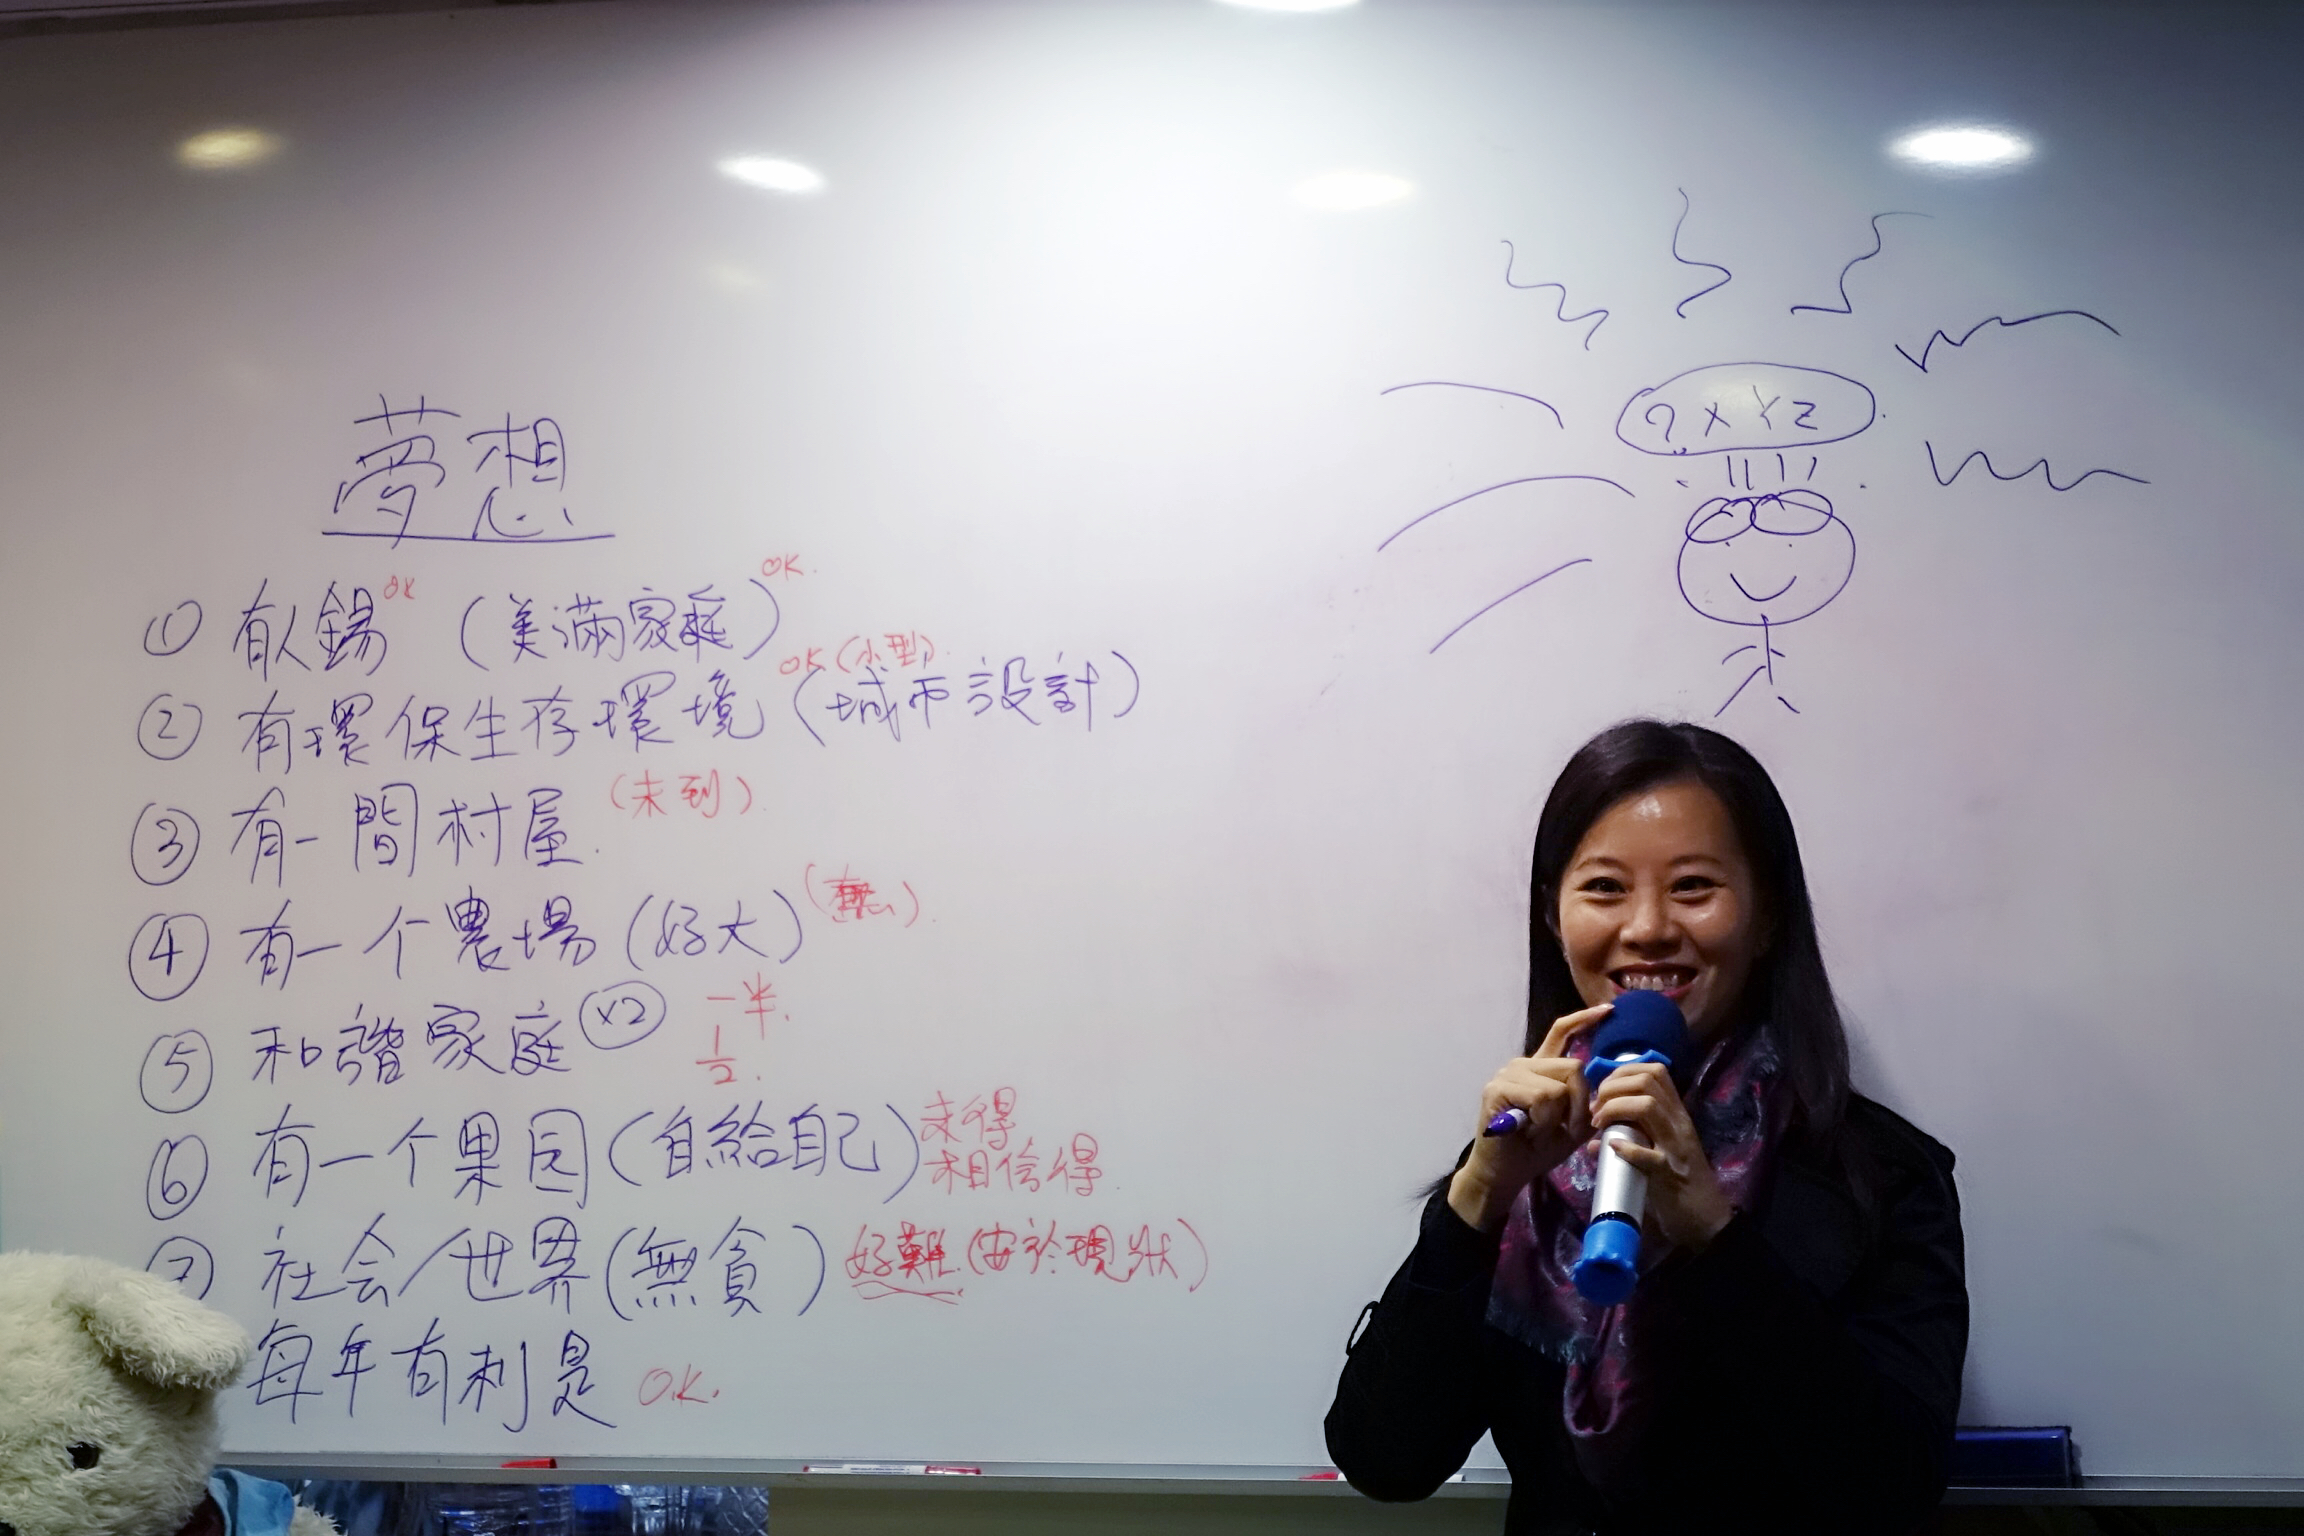 夢想
① 有人錫 OK (美滿家庭) OK.
② 有環保生存環境 OK (小型) (城市設計)
③ 有一間村屋. (未到).
④ 有一个農場 (好大) (無).
⑤ 和諧家庭 x2 一半. 1/2.
⑥ 有一个果园 (自給自己) 未得 相信得
⑦ 社会/世界 (無貪) 好難. (安於現狀)
每年有利是 O.K.
? X Y Z